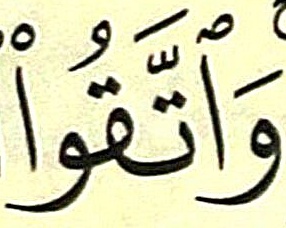 وَٱتَّقُوا۟